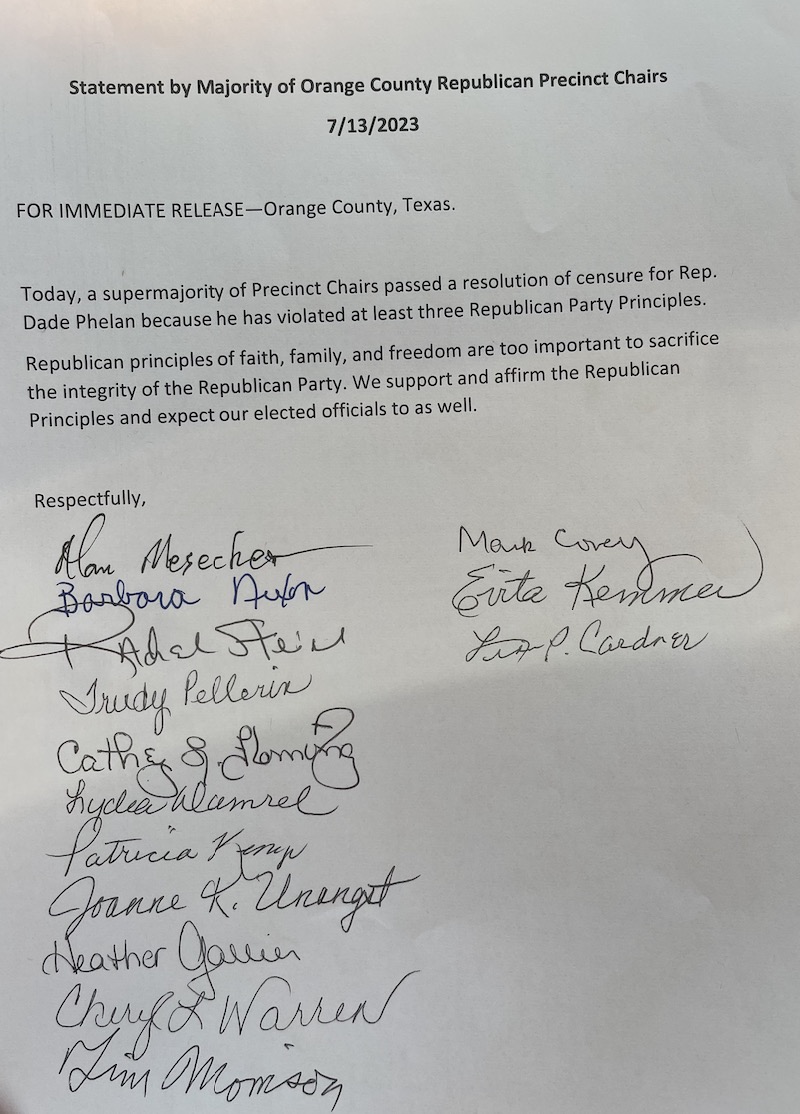 Statement by Majority of Orange County Republican Precinct Chairs
7/13/2023
FOR IMMEDIATE RELEASE—Orange County, Texas.
Today, a supermajority of Precinct Chairs passed a resolution of censure for Rep.
Dade Phelan because he has violated at least three Republican Party Principles.
Republican principles of faith, family, and freedom are too important to sacrifice
the integrity of the Republican Party. We support and affirm the Republican
Principles and expect our elected officials to as well.
Respectfully,
Alan Mesecher
Barbara
Rachel Stein
Trudy Pellerin
Cathy
Lydia Damrel
Patricia Kemp
Joanne K. Unangst
Heather
Cheryl L Warren
Tim
Mark Covey
Evita Kemmer
P. Cardner